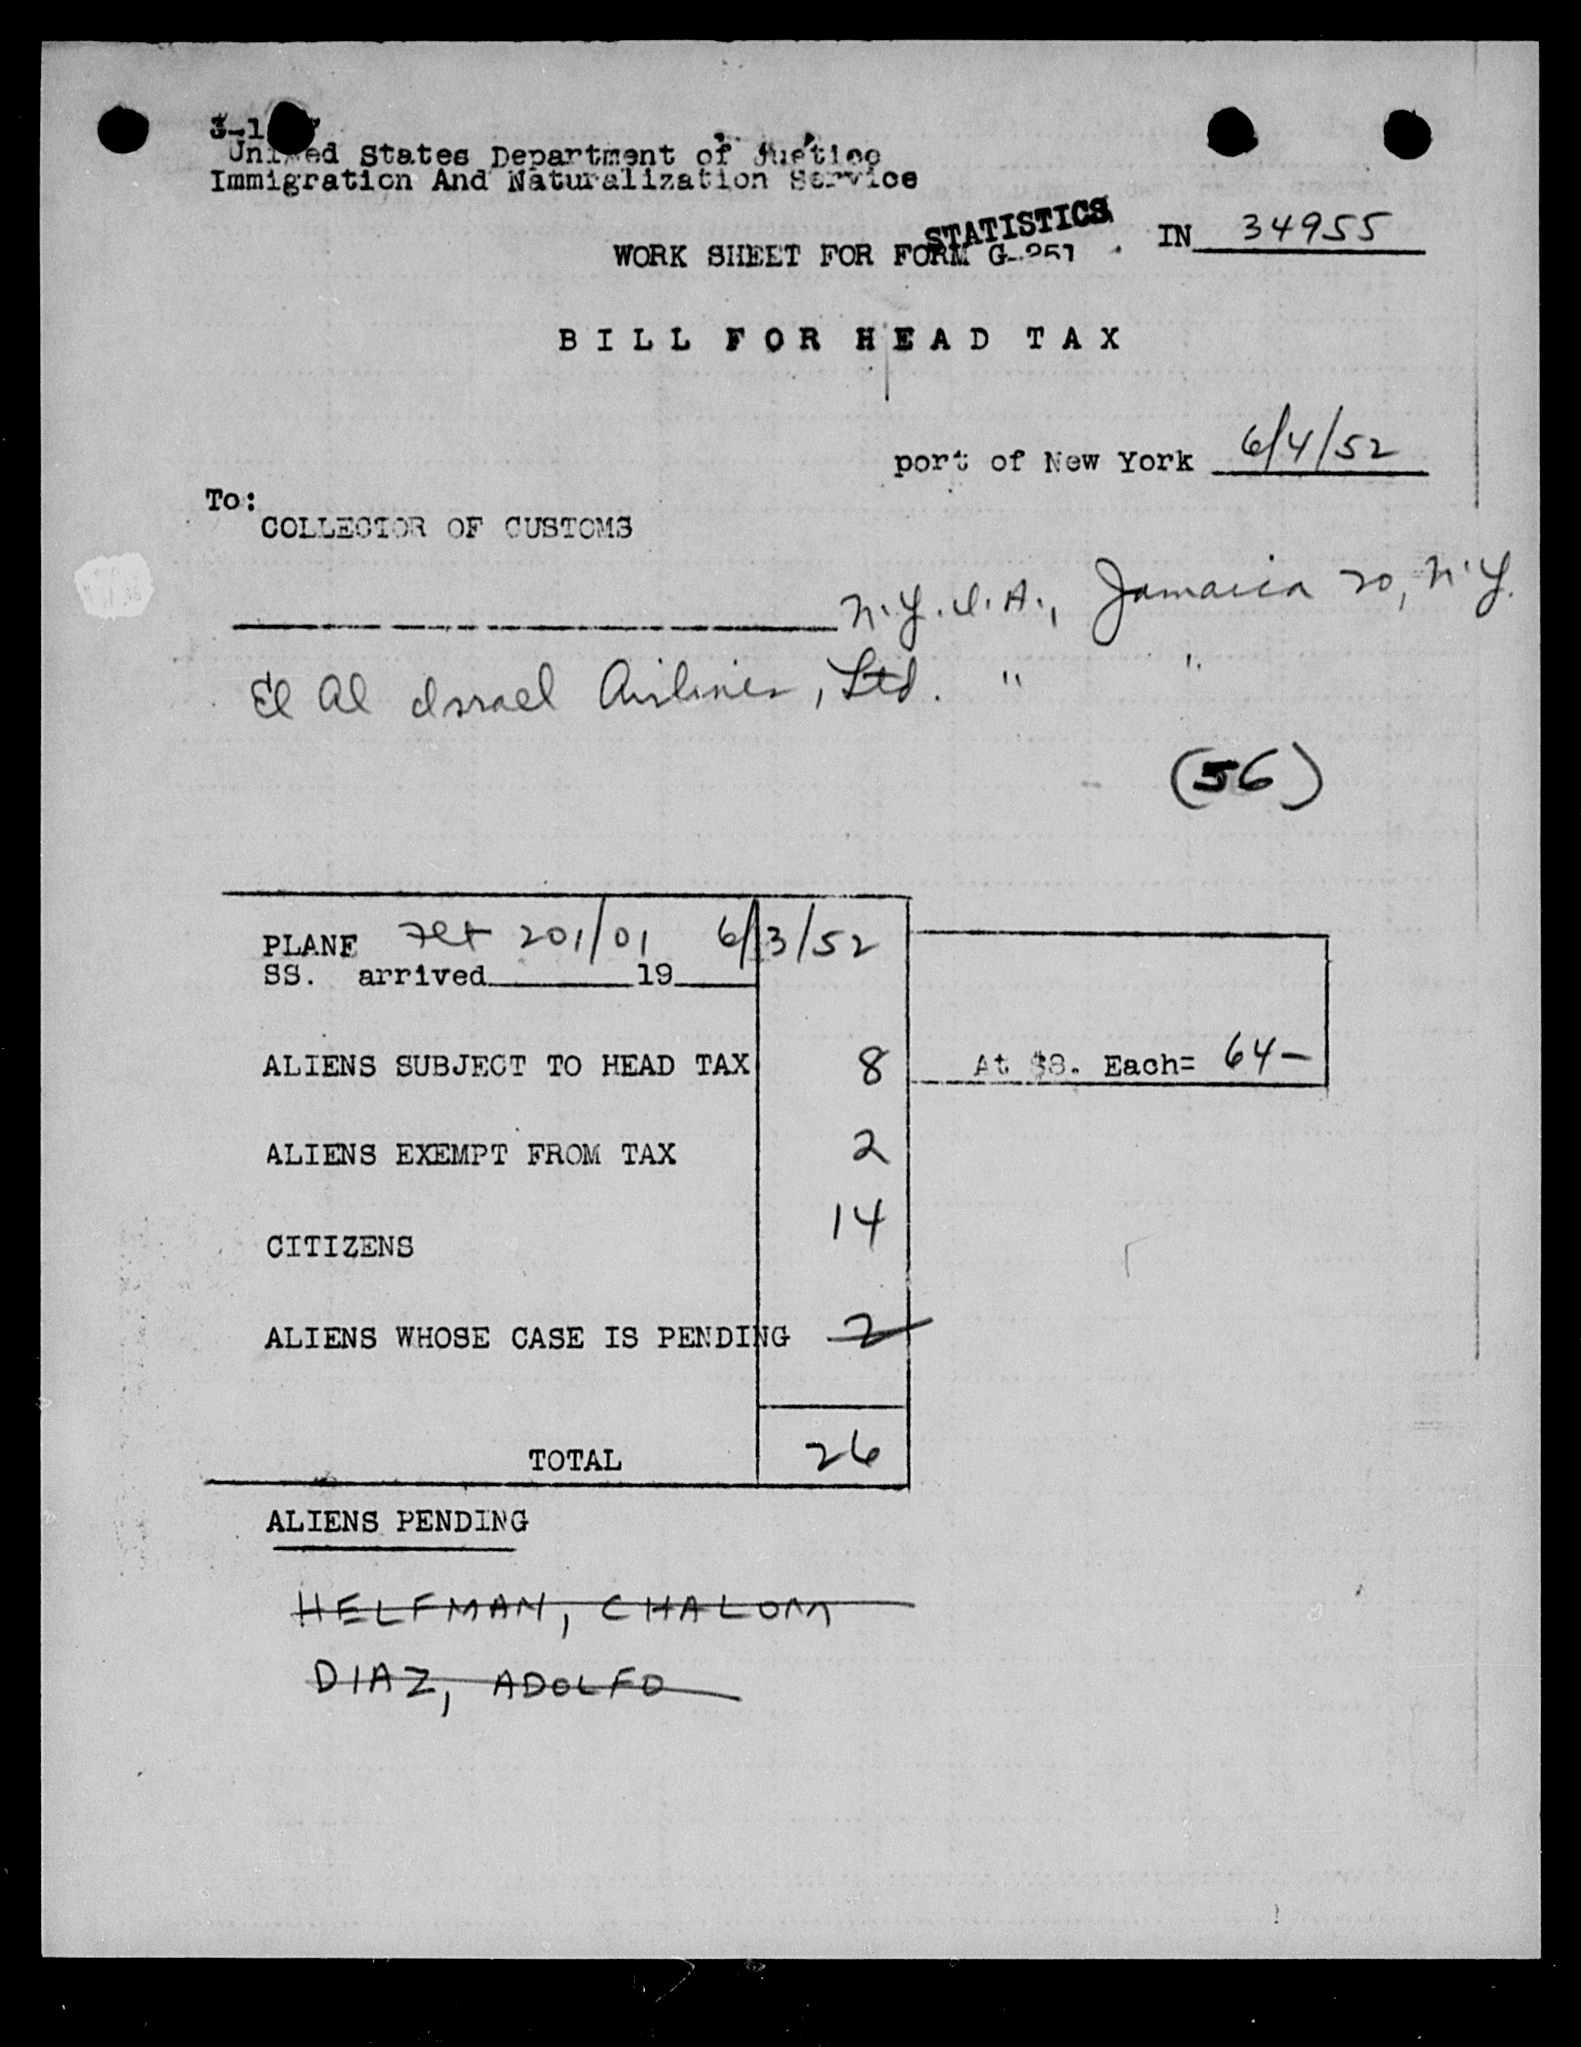 United States Department of Justice
Immigration And Naturalization Service
STATISTICS
IN 34955
WORK SHEET FOR FORM G-251
BILL FOR HEAD TAX
port of New York 6/4/52
To:
COLLECTOR OF CUSTOMS
N.Y.I.A., Jamaica 20, N.Y.
El Al Israel Airlines, Ltd. " "
(56)
PLANE Flt 201/01 6/3/52
SS. arrived 19
ALIENS SUBJECT TO HEAD TAX 8 At $8. Each= 64-
ALIENS EXEMPT FROM TAX 2
CITIZENS 14
ALIENS WHOSE CASE IS PENDING 2
TOTAL 26
ALIENS PENDING
HELFMAN, CHALOM
DIAZ, ADOLFO